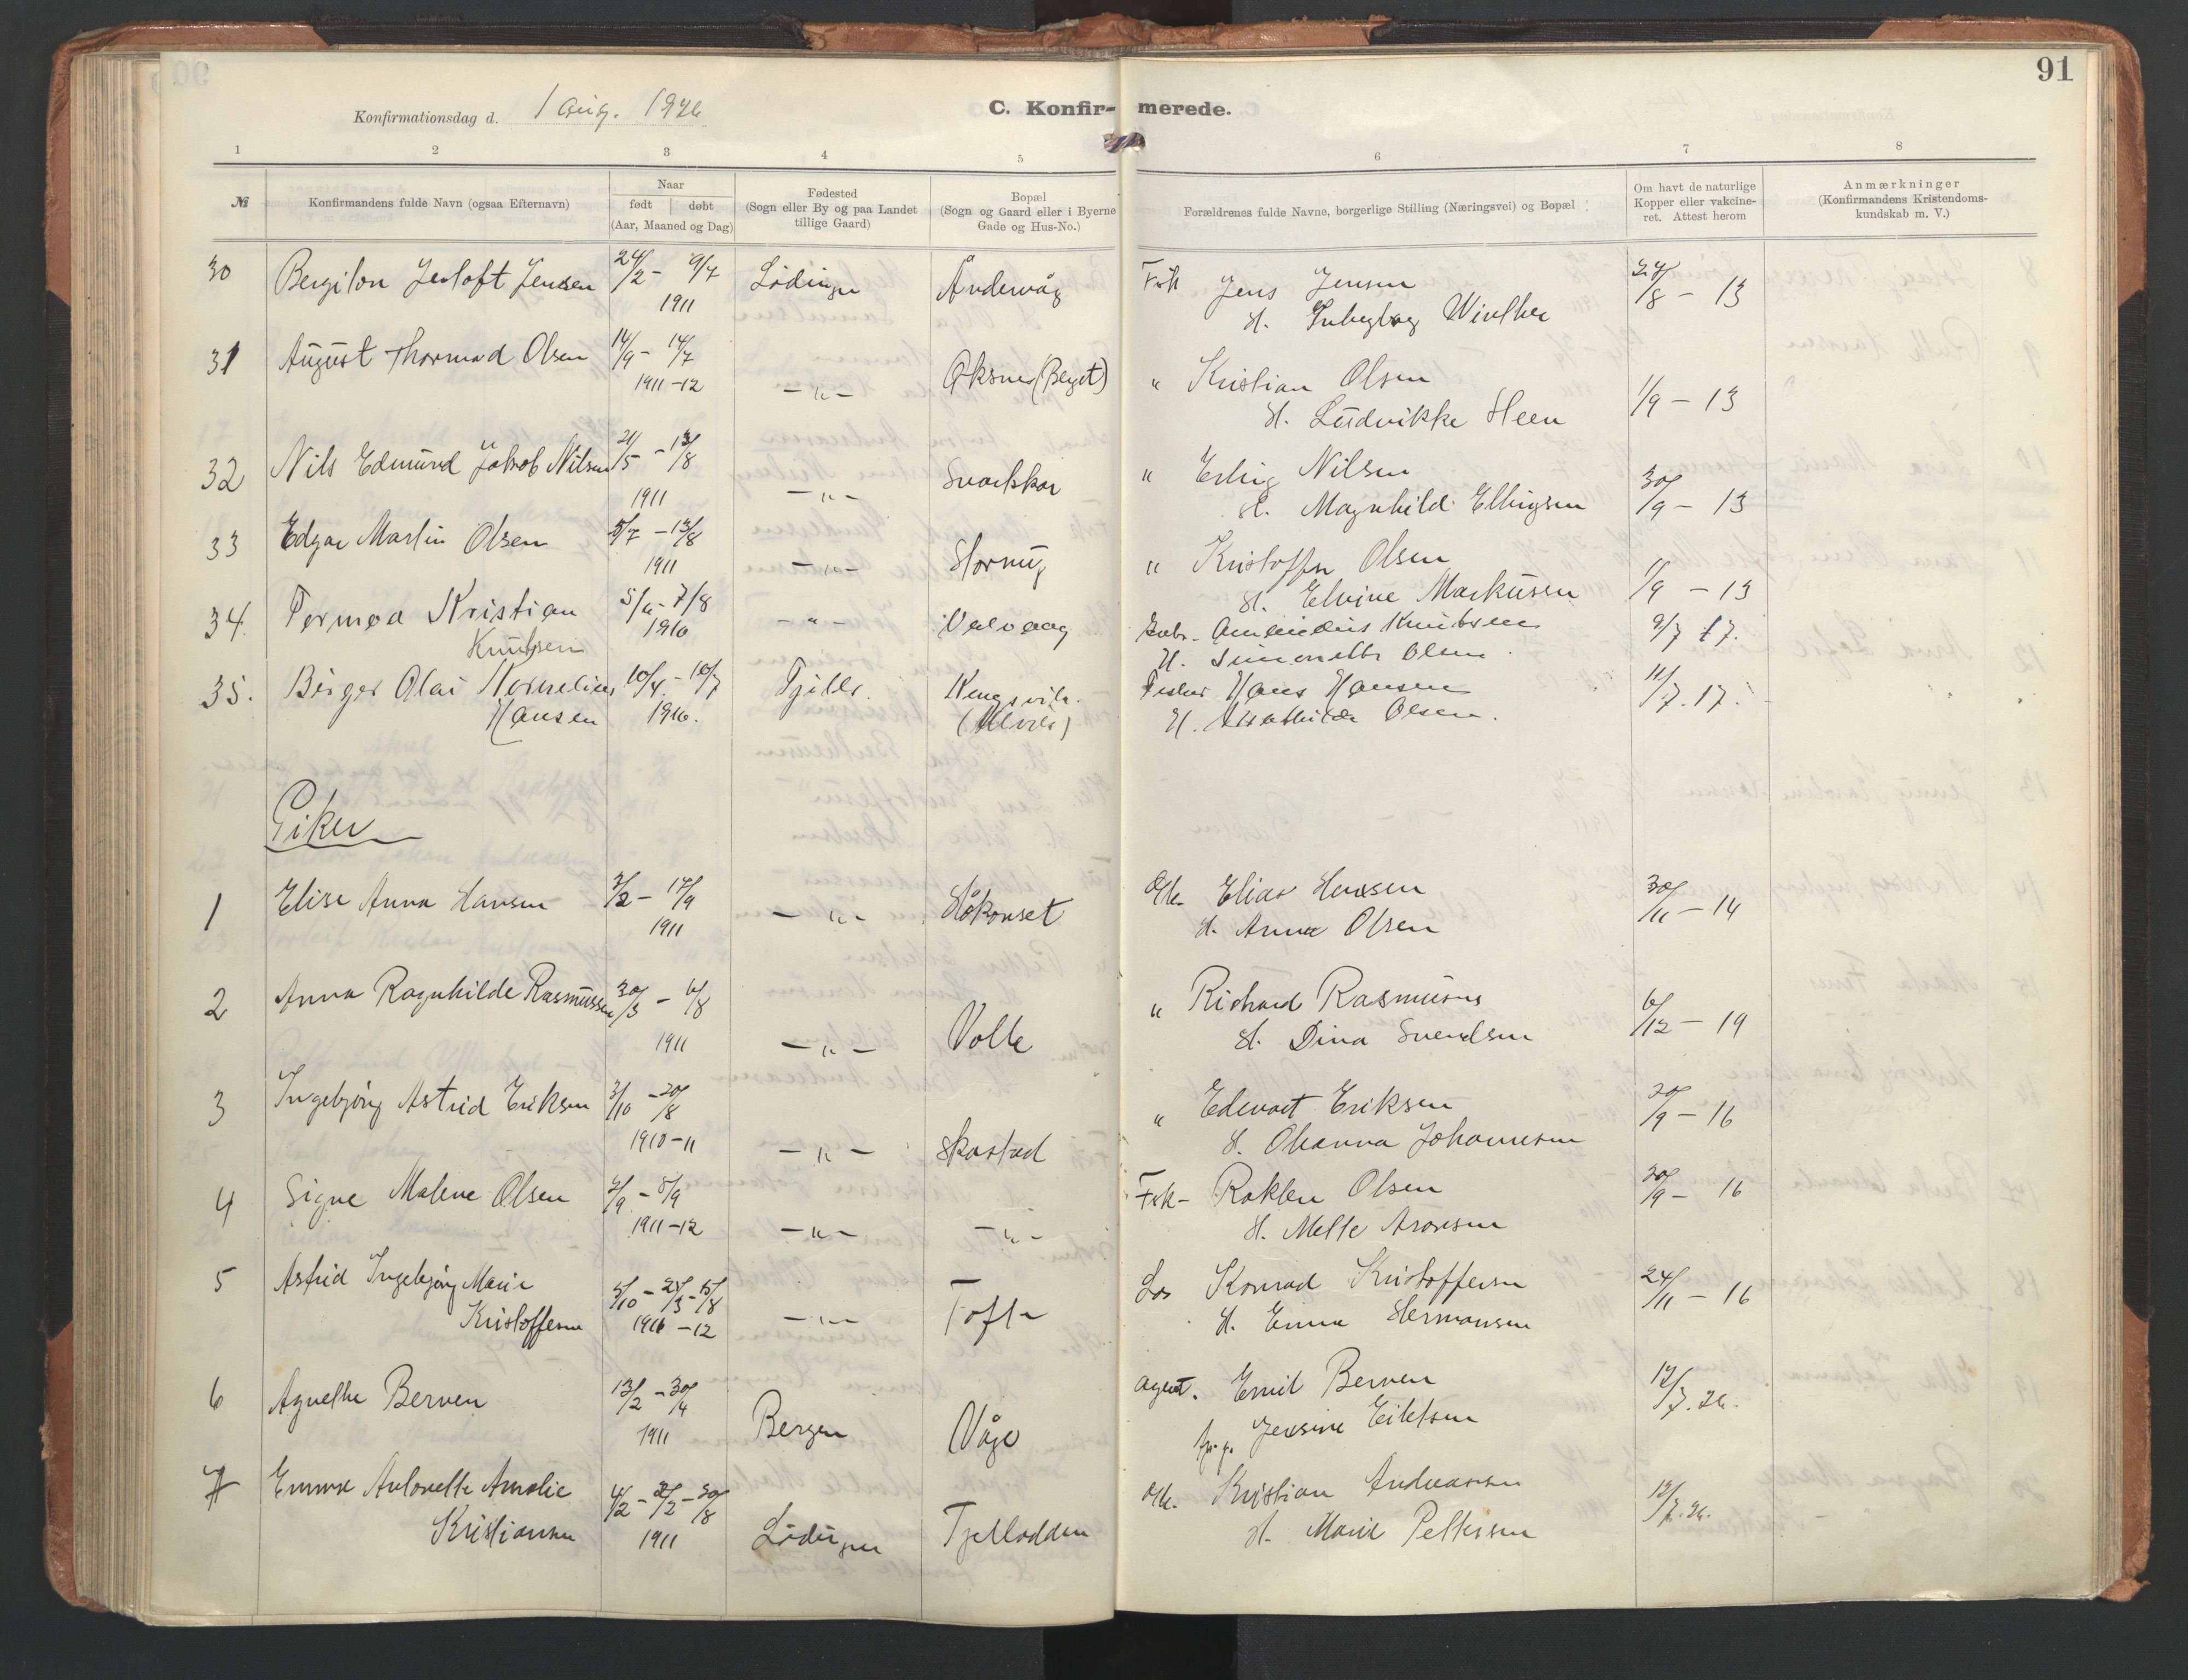 91
Konfirmationsdag d. 1 Aug. 1926
C. Konfirmerede.
1 2 3 4 5 6 7 8
№
Konfirmandens fulde Navn (ogsaa Efternavn)
Naar
født | døbt
(Aar, Maaned og Dag)
Fødested
(Sogn eller By og paa Landet
tillige Gaard)
Bopæl
(Sogn og Gaard eller i Byerne
Gade og Hus-No.)
Forældrenes fulde Navne, borgerlige Stilling (Næringsvei) og Bopæl
Om havt de naturlige
Kopper eller vakcine-
ret. Attest herom
Anmærkninger
(Konfirmandens Kristendoms-
kundskab m. V.)
30 Jensen 24/2 - 9/7 Lødingen Åndervåg Fisk Jens Jensen 24/8 - 13
1911 H. Winther
31 August Thormod Olsen 14/9 - 14/7 -"- (Berget) " Kristian Olsen 1/9 - 13
1911-12 H. Ludvikke Heen
32 Nils Edmund Jakob Nilsen 21/5 - 13/8 -"- Svartskar " Erling Nilsen 30/9 - 13
1911 H. Magnhild Ellingsen
33 Edgar Martin Olsen 5/7 - 13/8 -"- " Kristoffer Olsen 1/9 - 13
1911 H. Elvine Markussen
34. Tormod Kristian 5/6 - 7/8 -"- Knutsen 9/7 17.
Knutsen 1910 H. Simonette Olsen
35. Birger Olai Kornelius 10/4 - 10/7 Tjells. Kongsvik. Fisker Hans Hansen 11/7. 17.
Hansen 1910. H. Olsen.
Piker
1 Elise Anna Hansen 3/2 - 17/9 -"- Håkonset Gbr. Elias Hansen 30/11 - 14
1911 H. Anna Olsen
2 Anna Ragnhilde Rasmussen 30/3 - 6/8 -"- Volle " Richard Rasmusen 6/12 - 19
1911 H. Dina Svendsen
3 Ingebjørg Astrid Eriksen 3/10 - 20/8 -"- Skarstad " Edevart Eriksen 20/9 - 16
1910-11 H. Ohanna Johannesen
4 Signe Malene Olsen 2/9 - 8/9 -"- -"- Fisk - Olsen 30/9 - 16
1911-12 H. Mette Aronsen
5 Astrid Ingebjørg Marie
Kristoffersen 5/10 - 25/3 - 15/8 -"- Tofte Los Konrad Kristoffersen 24/11 - 16
-12 H. Emma Hermansen
6 Agnethe Berven 13/2 - 30/4 Bergen Våge agent. Emil Berven 12/7. 26.
1911 Jensine
7 Emma Antonette Amalie
Kristiansen 4/2 - 2/2 - 30/8 Lødingen Tjellodden Gbr. Kristian Andreassen 12/7. 26.
1911 H. Marie Pettersen